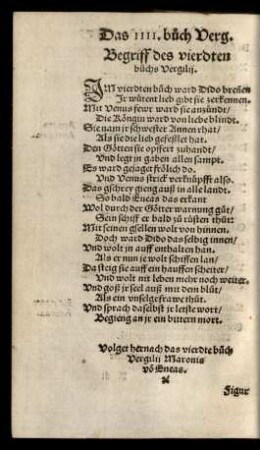 Das IIII. bůch Verg.
Begriff des vierdten
bůchs Vergilij.
IM vierdten bůch ward Dido breñen
Ir wůtent lieb gibt sie zerkennen.
Mit Venus fewr ward sie anzündt/
Die Köngin ward von liebe blindt.
Sie nam jr schwester Annen rhat/
Als sie die lieb gefesslet hat.
Den Götten sie opffert zuhandt/
Und legt in gaben allen sampt.
Es ward gejaget frölich do.
Und Venus strick verknüpfft also.
Das gschrey gieng auß in alle landt.
So bald Eneas das erkant
Wol durch der Götter warnung gůt/
Sein schiff er bald zů rüsten thůt
Mit seinen gsellen wolt von hinnen.
Doch ward Dido das selbig innen/
Und wolt in auff enthalten han.
Als er nun je wolt schiffen lan/
Da steig sie auff ein hauffen scheiter/
Und wolt nit leben mehr noch weiter.
Und goß jr seel auß mit dem blůt/
Als ein unselge frawe thůt.
Und sprach daselbst jr letste wort/
Begieng an jr ein bittern mort.
Volget hernach das vierdte bůch
Vergilij Maronis
võ Eneas.
Figur